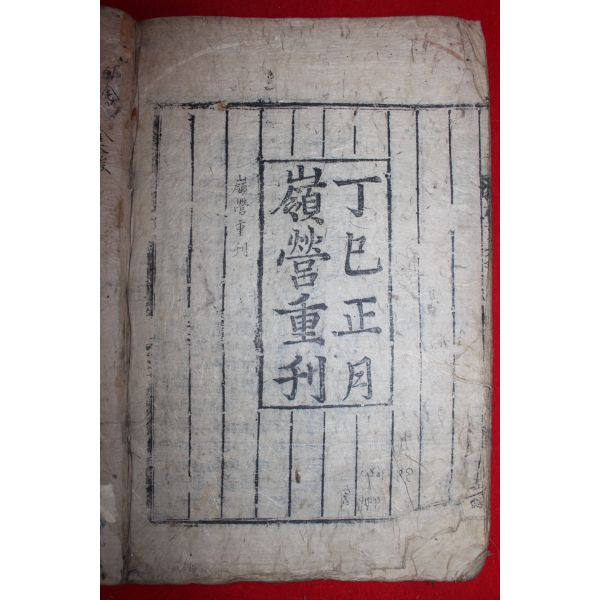 丁巳正月
嶺營重刊
嶺營重刊